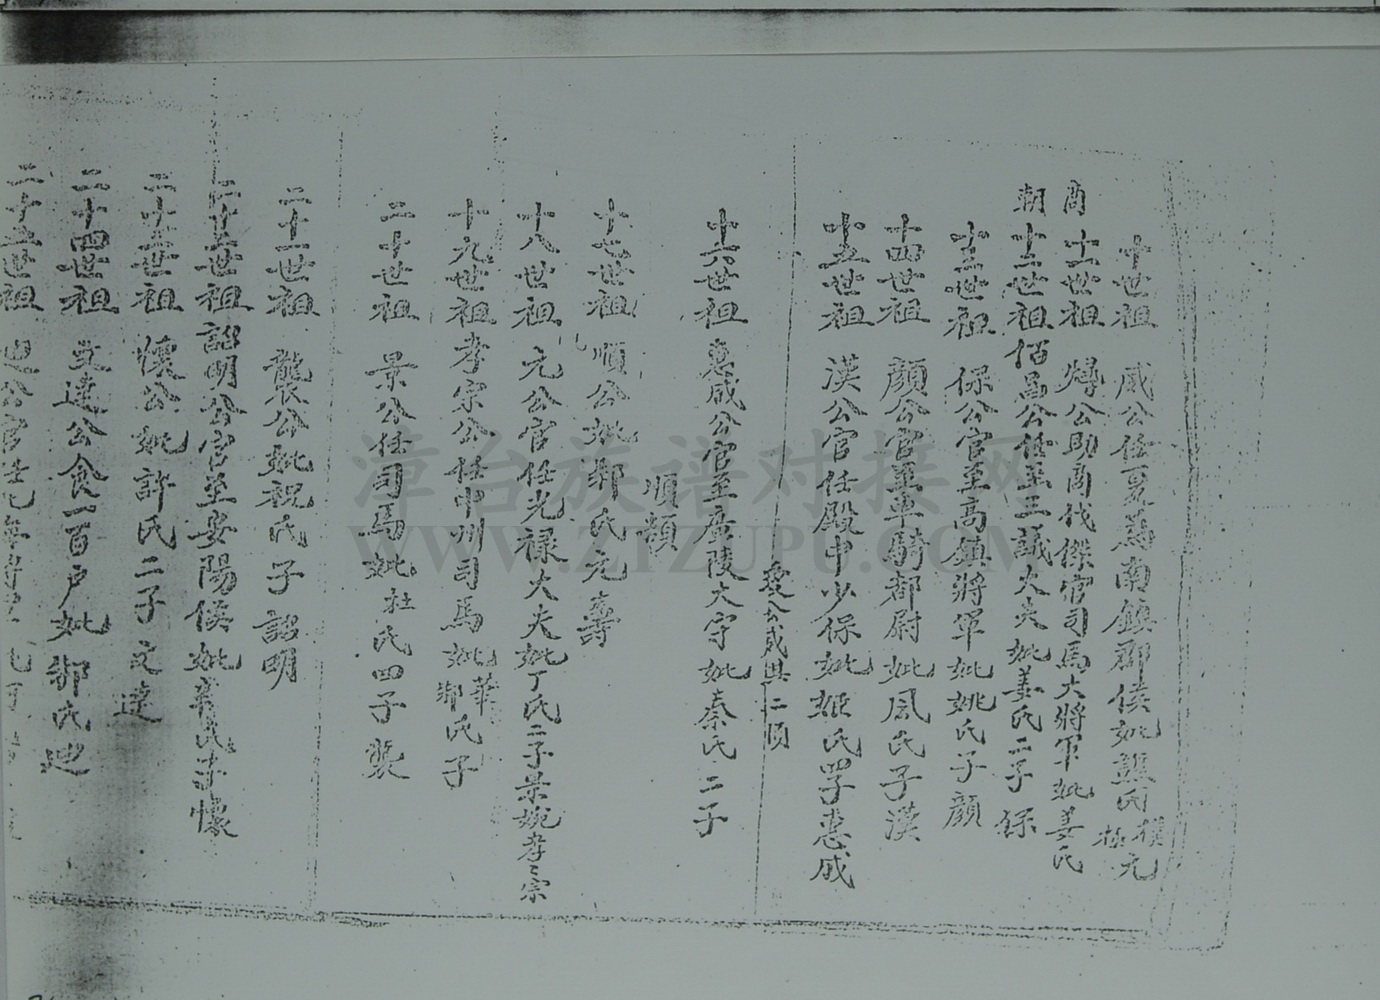 十世祖 威公任夏為南鎮郡侯妣龔氏
商 十一世祖 燁公助商伐傑官司馬大將軍妣姜氏
朝 十二世祖佰昌公任至三議大夫妣姜氏二子 保
十三世祖 保公官至高鎮將軍妣姚氏子顏
十四世祖 顏公官至車騎都尉妣風氏子漢
十五世祖 漢公官任殿中少保妣姬氏四子惠成
十六世祖 惠成公官至廣陵大守妣秦氏二子
順 額
十七世祖 順公妣鄒氏元壽
十八世祖 元公官任光禄大夫妣丁氏二子景婉孝宗
十九世祖 孝宗公任中州司馬妣華鄒氏子
二十世祖 景公任司馬妣杜氏四子
二十一世祖 襲公妣祝氏子詔明
二十二世祖 詔明公官至安陽侯妣 氏子懷
二十三世祖 懷公妣許氏二子文達
二十四世祖 文達公食一百户妣鄒氏迎
二十五世祖 迎公官
漳台族谱对接网
WWW.ZTZUPU.COM